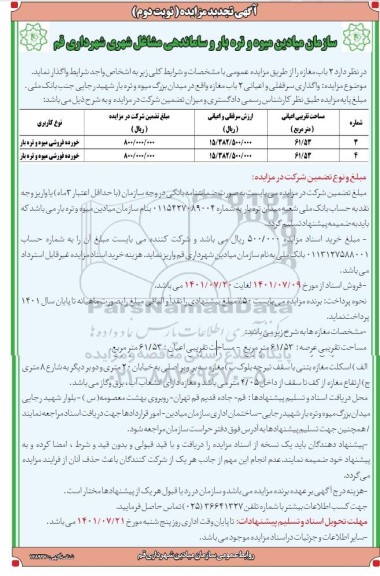 آگهی تجدید مزایده (نوبت دوم)
سازمان میادین میوه و تره بار و ساماندهی مشاغل شهری شهرداری قم
در نظر دارد ۲ باب مغازه را از طریق مزایده عمومی با مشخصات و شرایط کلی زیر به اشخاص واجد شرایط واگذار نماید.
موضوع مزایده: واگذاری سرقفلی و اعیانی ۲ باب مغازه واقع در میدان بزرگ میوه و تره بار شهید رجایی جنب بانک ملی.
مبلغ پایه مزایده طبق نظر کارشناس رسمی دادگستری و میزان تضمین شرکت در مزایده و به شرح ذیل می باشد:
شماره مساحت تقریبی اعیانی (متر مربع) ارزش سرقفلی و اعیانی (ریال) مبلغ تضمین شرکت در مزایده (ریال) نوع کاربری
۳ ۶۱/۵۳ ۱۵/۳۸۲/۵۰۰/۰۰۰ ۸۰۰/۰۰۰/۰۰۰ خورده فروشی میوه و تره بار
۴ ۶۱/۵۳ ۱۵/۳۸۲/۵۰۰/۰۰۰ ۸۰۰/۰۰۰/۰۰۰ خورده فروشی میوه و تره بار
مبلغ و نوع تضمین شرکت در مزایده:
مبلغ تضمین شرکت در مزایده می بایست به صورت ضمانتنامه بانکی در وجه سازمان (با حداقل اعتبار ۳ ماه) یا واریز وجه
نقد به حساب بانک ملی شعبه میدان تره بار به شماره ۰۱۱۵۴۲۷۰۸۹۰۰۴ بنام سازمان میادین میوه و تره بار می باشد که
باید به ضمیمه پیشنهاد تسلیم گردد.
- مبلغ خرید اسناد مزایده ۵۰۰/۰۰۰ ریال می باشد و شرکت کننده می بایست مبلغ آن را به شماره حساب
۰۱۱۳۱۲۷۵۸۸۰۰۱ بانک ملی به نام سازمان میادین شهرداری قم واریز نماید. هزینه خرید اسناد مزایده غیرقابل استرداد
می باشد.
-فروش اسناد از مورخ ۱۴۰۱/۰۷/۰۹ لغایت ۱۴۰۱/۰۷/۲۰ می باشد.
نحوه پرداخت: برنده مزایده می بایست ۵۰٪ مبلغ پیشنهادی را نقداً و الباقی مبلغ را بصورت ماهیانه تا پایان سال ۱۴۰۱
پرداخت نماید.
-مشخصات مغازه ها به شرح زیر می باشد:
مساحت تقریبی عرصه: ۶۱/۵۳ متر مربع - مساحت تقریبی اعیان: ۶۱/۵۳ متر مربع
الف) اسکلت مغازه بتنی با سقف تیرچه بلوک ب) مغازه سه بر و بر اصلی به خیابان ۲۰ متری و دو بر دیگر به شارع ۸ متری
ج) ارتفاع مغازه از کف تا سقف از داخل ۴/۰۵ متر می باشد و مغازه دارای انشعاب آب، برق و گاز می باشد.
محل دریافت اسناد و تسلیم پیشنهادها: قم- جاده قدیم قم تهران- روبروی بهشت معصومه (س) - بلوار شهید رجایی
میدان بزرگ میوه و تره بار شهید رجایی-ساختمان اداری سازمان میادین- امور قراردادها جهت دریافت اسناد مراجعه نمایند
/همچنین جهت تسلیم پیشنهادها به آدرس فوق دفتر حراست سازمان مراجعه شود.
-پیشنهاد دهندگان باید یک نسخه از اسناد مزایده را دریافت و با قید قبولی و بدون قید و شرط، امضا کرده و به
پیشنهاد خود ضمیمه نمایند. عدم انجام این مهم از جانب هر یک از شرکت کنندگان باعث حذف آنان از فرایند مزایده
می گردد.
-هزینه درج آگهی بر عهده برنده مزایده می باشد و سازمان در رد یا قبول هر یک از پیشنهادها مختار است.
جهت کسب اطلاعات بیشتر با شماره تلفن ۳۶۶۴۱۳۲۷ (۰۲۵) تماس حاصل فرمایید.
مهلت تحویل اسناد و تسلیم پیشنهادات: تا پایان وقت اداری روز پنج شنبه مورخ ۱۴۰۱/۰۷/۲۱ می باشد.
-سایر اطلاعات و جزئیات در اسناد مزایده موجود می باشد.
روابط عمومی سازمان میادین شهرداری قم